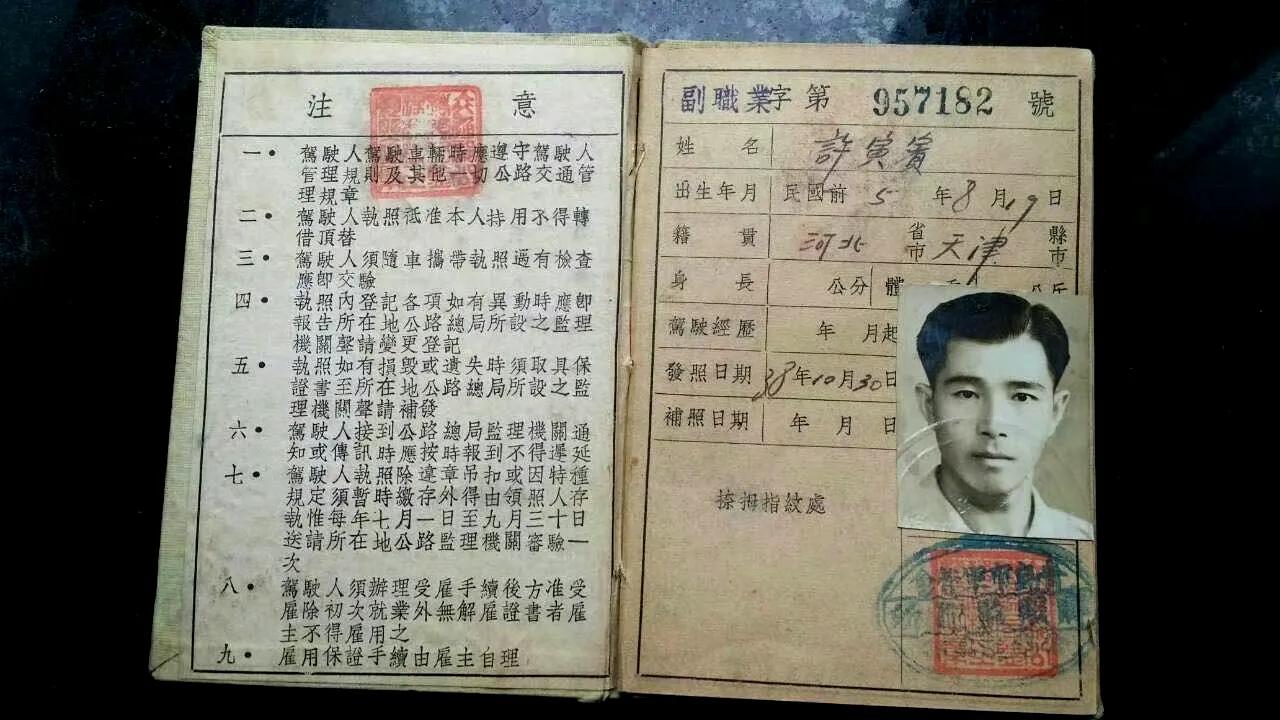 注意
一・駕駛人駕駛車輛時應遵守駕駛人
管理規則及其他一切公路交通管
理規章
二・駕駛人執照祗准本人持用不得轉
借頂替
三・駕駛人須隨車攜帶執照遇有檢查
應卽交驗
四・執照內登記各項如有異動時應卽
報告所在地公路總局所設之監理
機關聲請變更登記
五・執照如有損毀或遺失時須取具保
證書至所在地公路總局所設之監
理機關聲請補發
六・駕駛人接到公路總局監理機關通
知或傳訊時應按時報到不得遲延
七・駕駛人執照除違章吊扣或因特種
規定須暫時繳存外得由領照人存
執惟每年七月一日至九月三十日
送請所在地公路監理機關審驗一
次
八・駕駛人須辦理受雇手續後方准受
雇除初次就業外無解雇證書者雇
主不得雇用之
九・雇用保證手續由雇主自理
副職業字第 957182 號
姓名 許寅賓
出生年月 民國前 5 年 8 月 19 日
籍貫 河北 省市 天津 縣市
身長 公分 體
駕駛經歷 年 月起
發照日期 38年10月30日
補照日期 年 月 日
捺拇指紋處